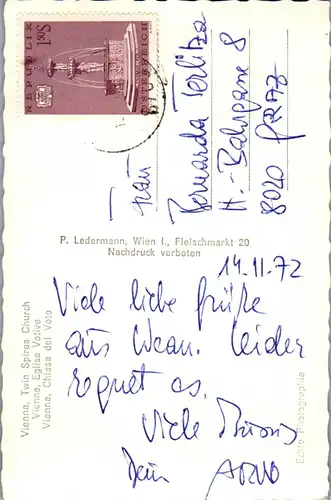 REPUBLIK
ÖSTERREICH
1.80S
Frau
Bernarda Terlitza
H.-Bahrgasse 8
8020 GRAZ
P. Ledermann, Wien I., Fleischmarkt 20
Nachdruck verboten
Vienna, Twin Spires Church
Vienne, Eglise Votive
Vienna, Chiesa del Voto
14.11.72
Viele liebe Grüße
aus Wean. Leider
regnet es.
Viele
Dein
Echte Photographie